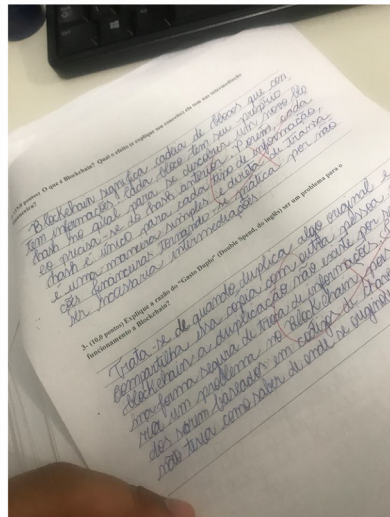 (10,0 pontos) O que é Blockchain? Qual o efeito (e explique seu conceito) ela tem nas intermediação
financeira?
Blockchain significa cadeia de blocos que con
tem informações, cada bloco tem seu próprio
hash no qual para se descobrir um novo blo
co precisa-se do hash anterior. Porém, cada
hash é único para cada tipo de informação,
é uma maneira simples e direta de transa
ções financeiras tornando-se prática por não
ser necessária intermediações.
3- (10,0 pontos) Explique a razão do "Gasto Duplo" (Double Spend, do inglês) ser um problema para o
funcionamento a Blockchain?
Trata-se de quando duplica algo original e
compartilha essa cópia com outra pessoa
blockchain a duplicação não existe por
ma forma segura de troca de informações.
ria um problema no Blockchain por
dos serem baseados em códigos de
não teria como saber de onde se